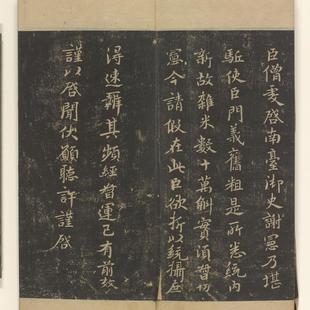 臣僧虔啓南臺御史謝憲乃堪
驅使臣門義舊粗是所悉統內
新故雜米數十萬斛實須督切
憲今請假在此臣欲折以統攝庶
得速辦其頻經督運已有前效
謹以啓聞伏願聽許謹啓